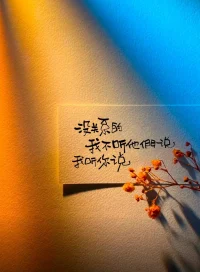 没关系的
我不听他们说
我听你说